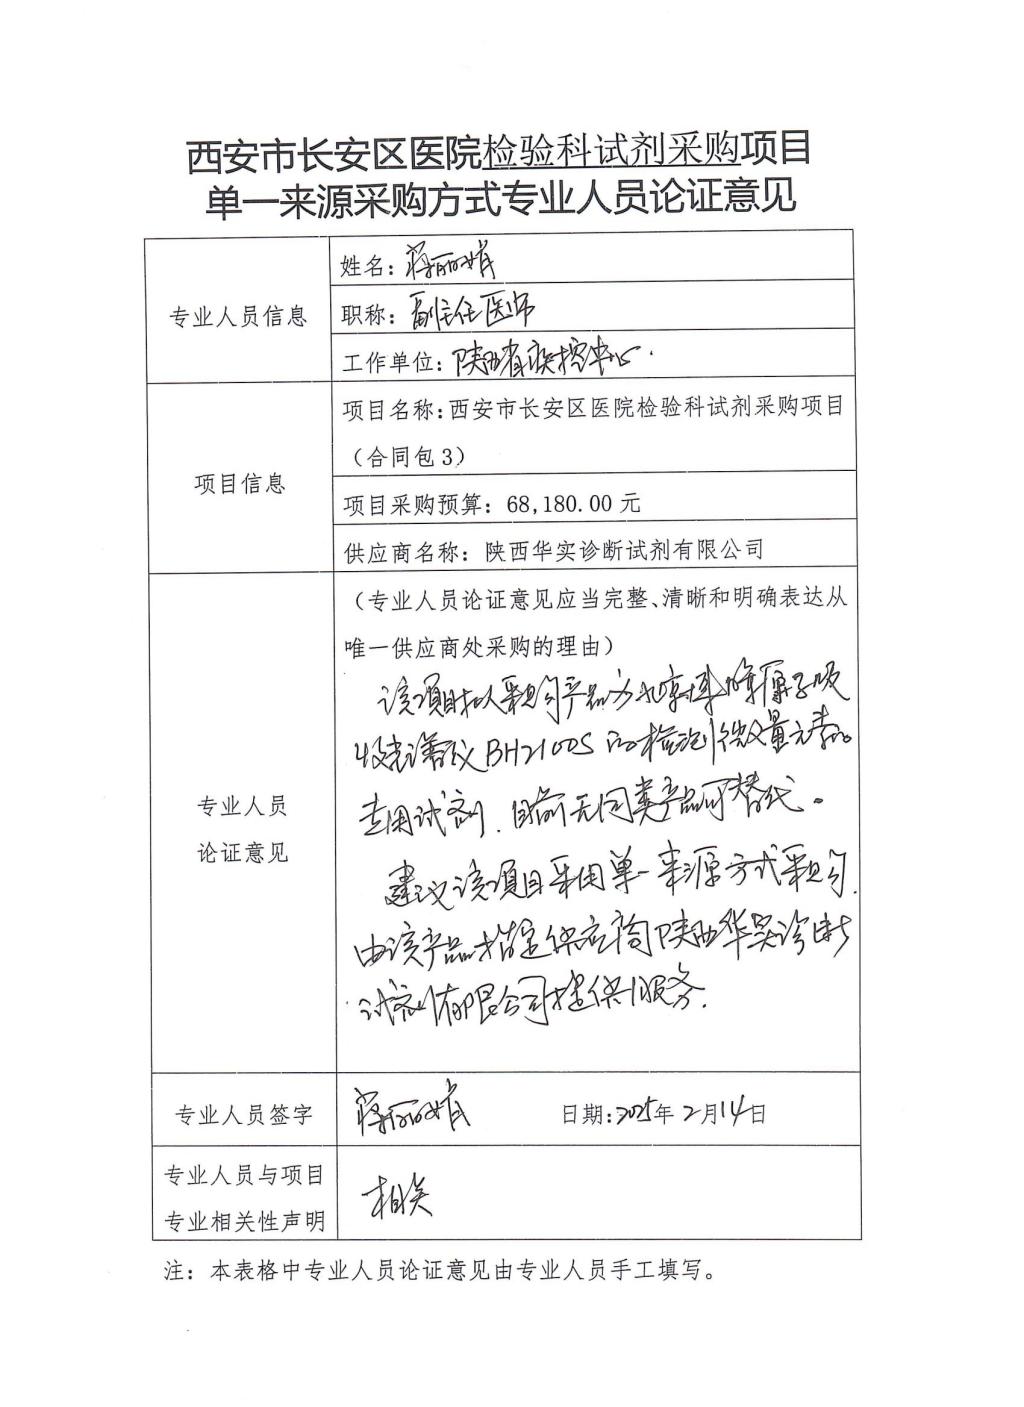 西安市长安区医院检验科试剂采购项目
单一来源采购方式专业人员论证意见
专业人员信息
姓名：蒋丽娟
职称：副主任医师
工作单位：陕西省疾控中心.
项目信息
项目名称：西安市长安区医院检验科试剂采购项目
（合同包 3）
项目采购预算：68,180.00 元
供应商名称：陕西华实诊断试剂有限公司
专业人员
论证意见
（专业人员论证意见应当完整、清晰和明确表达从
唯一供应商处采购的理由）
该项目拟采购产品为北京博晖原子吸
收光谱仪BH2100S的检测微量元素的
专用试剂，目前无同类产品可替代。
建议该项目采用单一来源方式采购，
由该产品指定供应商陕西华实诊断
试剂有限公司提供服务.
专业人员签字
蒋丽娟
日期：2025年 2月14日
专业人员与项目
专业相关性声明
相关
注：本表格中专业人员论证意见由专业人员手工填写。